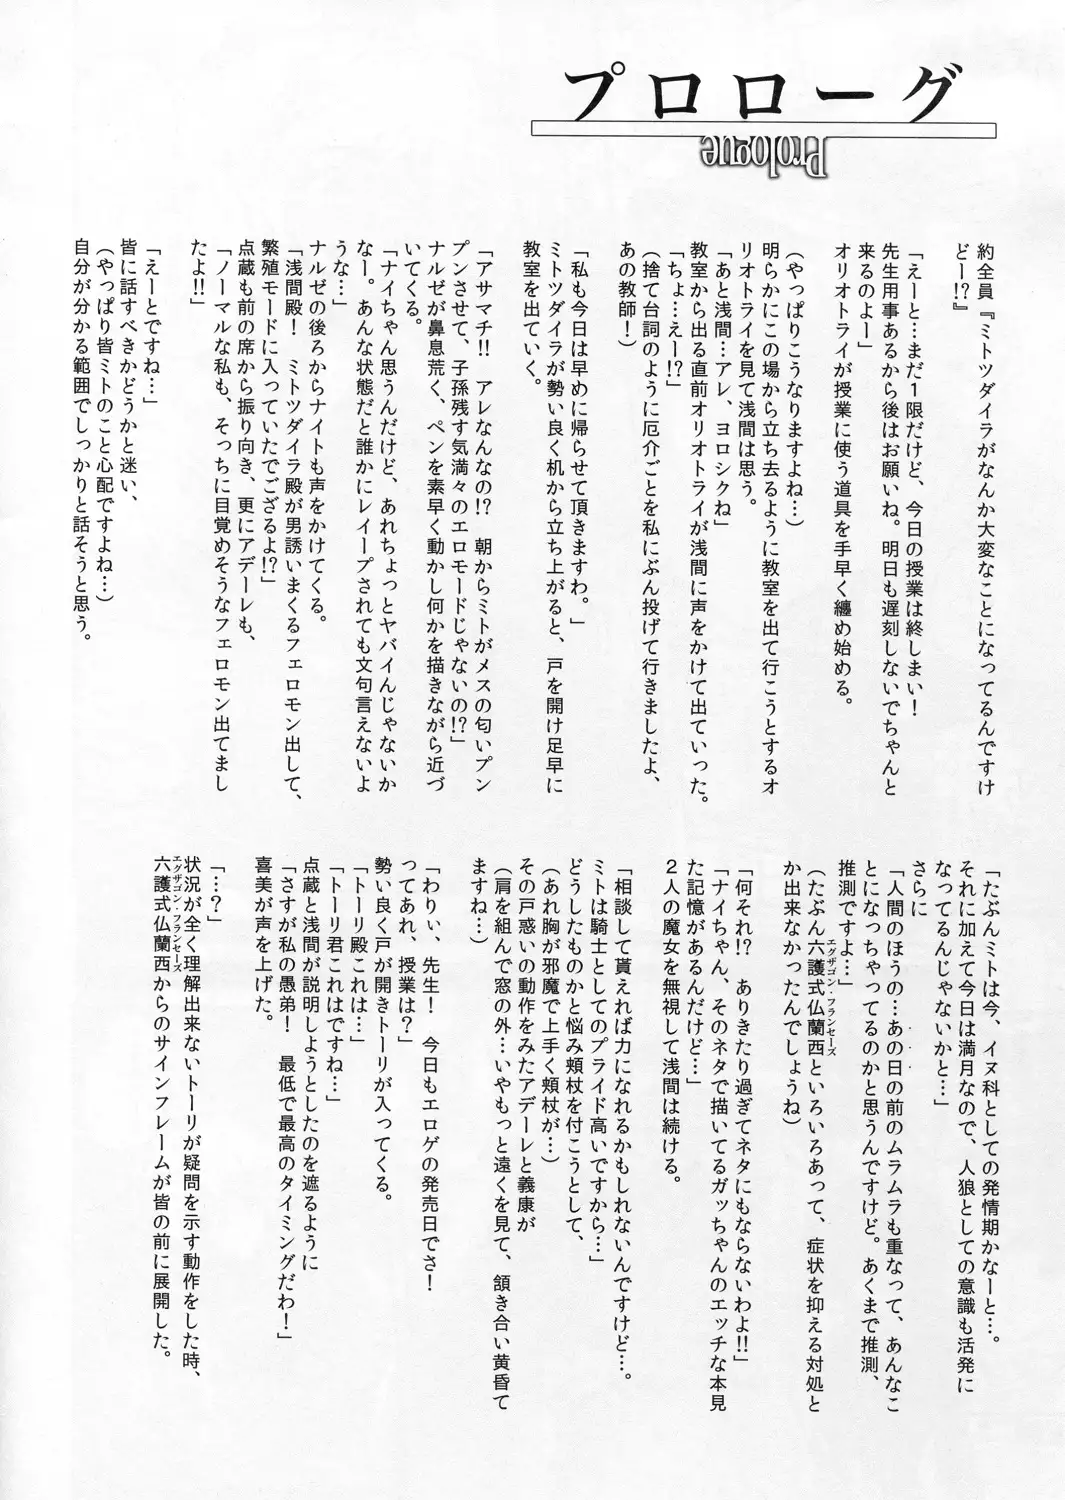 プロローグ
Prologue
約全員『ミトツダイラがなんか大変なことになってるんですけ
どー!?』
「えーと…まだ１限だけど、今日の授業は終しまい！
先生用事あるから後はお願いね。明日も遅刻しないでちゃんと
来るのよー」
オリオトライが授業に使う道具を手早く纏め始める。
（やっぱりこうなりますよね…）
明らかにこの場から立ち去るように教室を出て行こうとするオ
リオトライを見て浅間は思う。
「あと浅間…アレ、ヨロシクね」
教室から出る直前オリオトライが浅間に声をかけて出ていった。
「ちょ…えー!?」
（捨て台詞のように厄介ごとを私にぶん投げて行きましたよ、
あの教師！）
「私も今日は早めに帰らせて頂きますわ。」
ミトツダイラが勢い良く机から立ち上がると、戸を開け足早に
教室を出ていく。
「アサマチ!!　アレなんなの!?　朝からミトがメスの匂いプン
プンさせて、子孫残す気満々のエロモードじゃないの!?」
ナルゼが鼻息荒く、ペンを素早く動かし何かを描きながら近づ
いてくる。
「ナイちゃん思うんだけど、あれちょっとヤバイんじゃないか
なー。あんな状態だと誰かにレイープされても文句言えないよ
うな…」
ナルゼの後ろからナイトも声をかけてくる。
「浅間殿！　ミトツダイラ殿が男誘いまくるフェロモン出して、
繁殖モードに入っていたでござるよ!?」
点蔵も前の席から振り向き、更にアデーレも、
「ノーマルな私も、そっちに目覚めそうなフェロモン出てまし
たよ!!」
「えーとですね…」
皆に話すべきかどうかと迷い、
（やっぱり皆ミトのこと心配ですよね…）
自分が分かる範囲でしっかりと話そうと思う。
「たぶんミトは今、イヌ科としての発情期かなーと…。
それに加えて今日は満月なので、人狼としての意識も活発に
なってるんじゃないかと…」
さらに
「人間のほうの…あの日の前のムラムラも重なって、あんなこ
とになっちゃってるのかと思うんですけど。あくまで推測、
推測ですよ…」
（たぶん六護式仏蘭西といろいろあって、症状を抑える対処と
エグザゴン・フランセーズ
か出来なかったんでしょうね）
「何それ!?　ありきたり過ぎてネタにもならないわよ!!」
「ナイちゃん、そのネタで描いてるガッちゃんのエッチな本見
た記憶があるんだけど…」
２人の魔女を無視して浅間は続ける。
「相談して貰えれば力になれるかもしれないんですけど…。
ミトは騎士としてのプライド高いですから…」
どうしたものかと悩み頬杖を付こうとして、
（あれ胸が邪魔で上手く頬杖が…）
その戸惑いの動作をみたアデーレと義康が
（肩を組んで窓の外…いやもっと遠くを見て、頷き合い黄昏て
ますね…）
「わりぃ、先生！　今日もエロゲの発売日でさ！
ってあれ、授業は？」
勢い良く戸が開きトーリが入ってくる。
「トーリ殿これは…」
「トーリ君これはですね…」
点蔵と浅間が説明しようとしたのを遮るように
「さすが私の愚弟！　最低で最高のタイミングだわ！」
喜美が声を上げた。
「…？」
状況が全く理解出来ないトーリが疑問を示す動作をした時、
六護式仏蘭西からのサインフレームが皆の前に展開した。
エグザゴン・フランセーズ